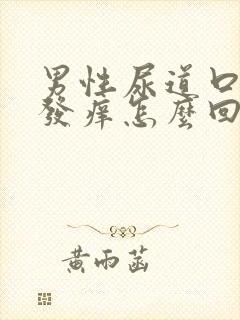 男性尿道口
發痒怎麼回
黃雨菡